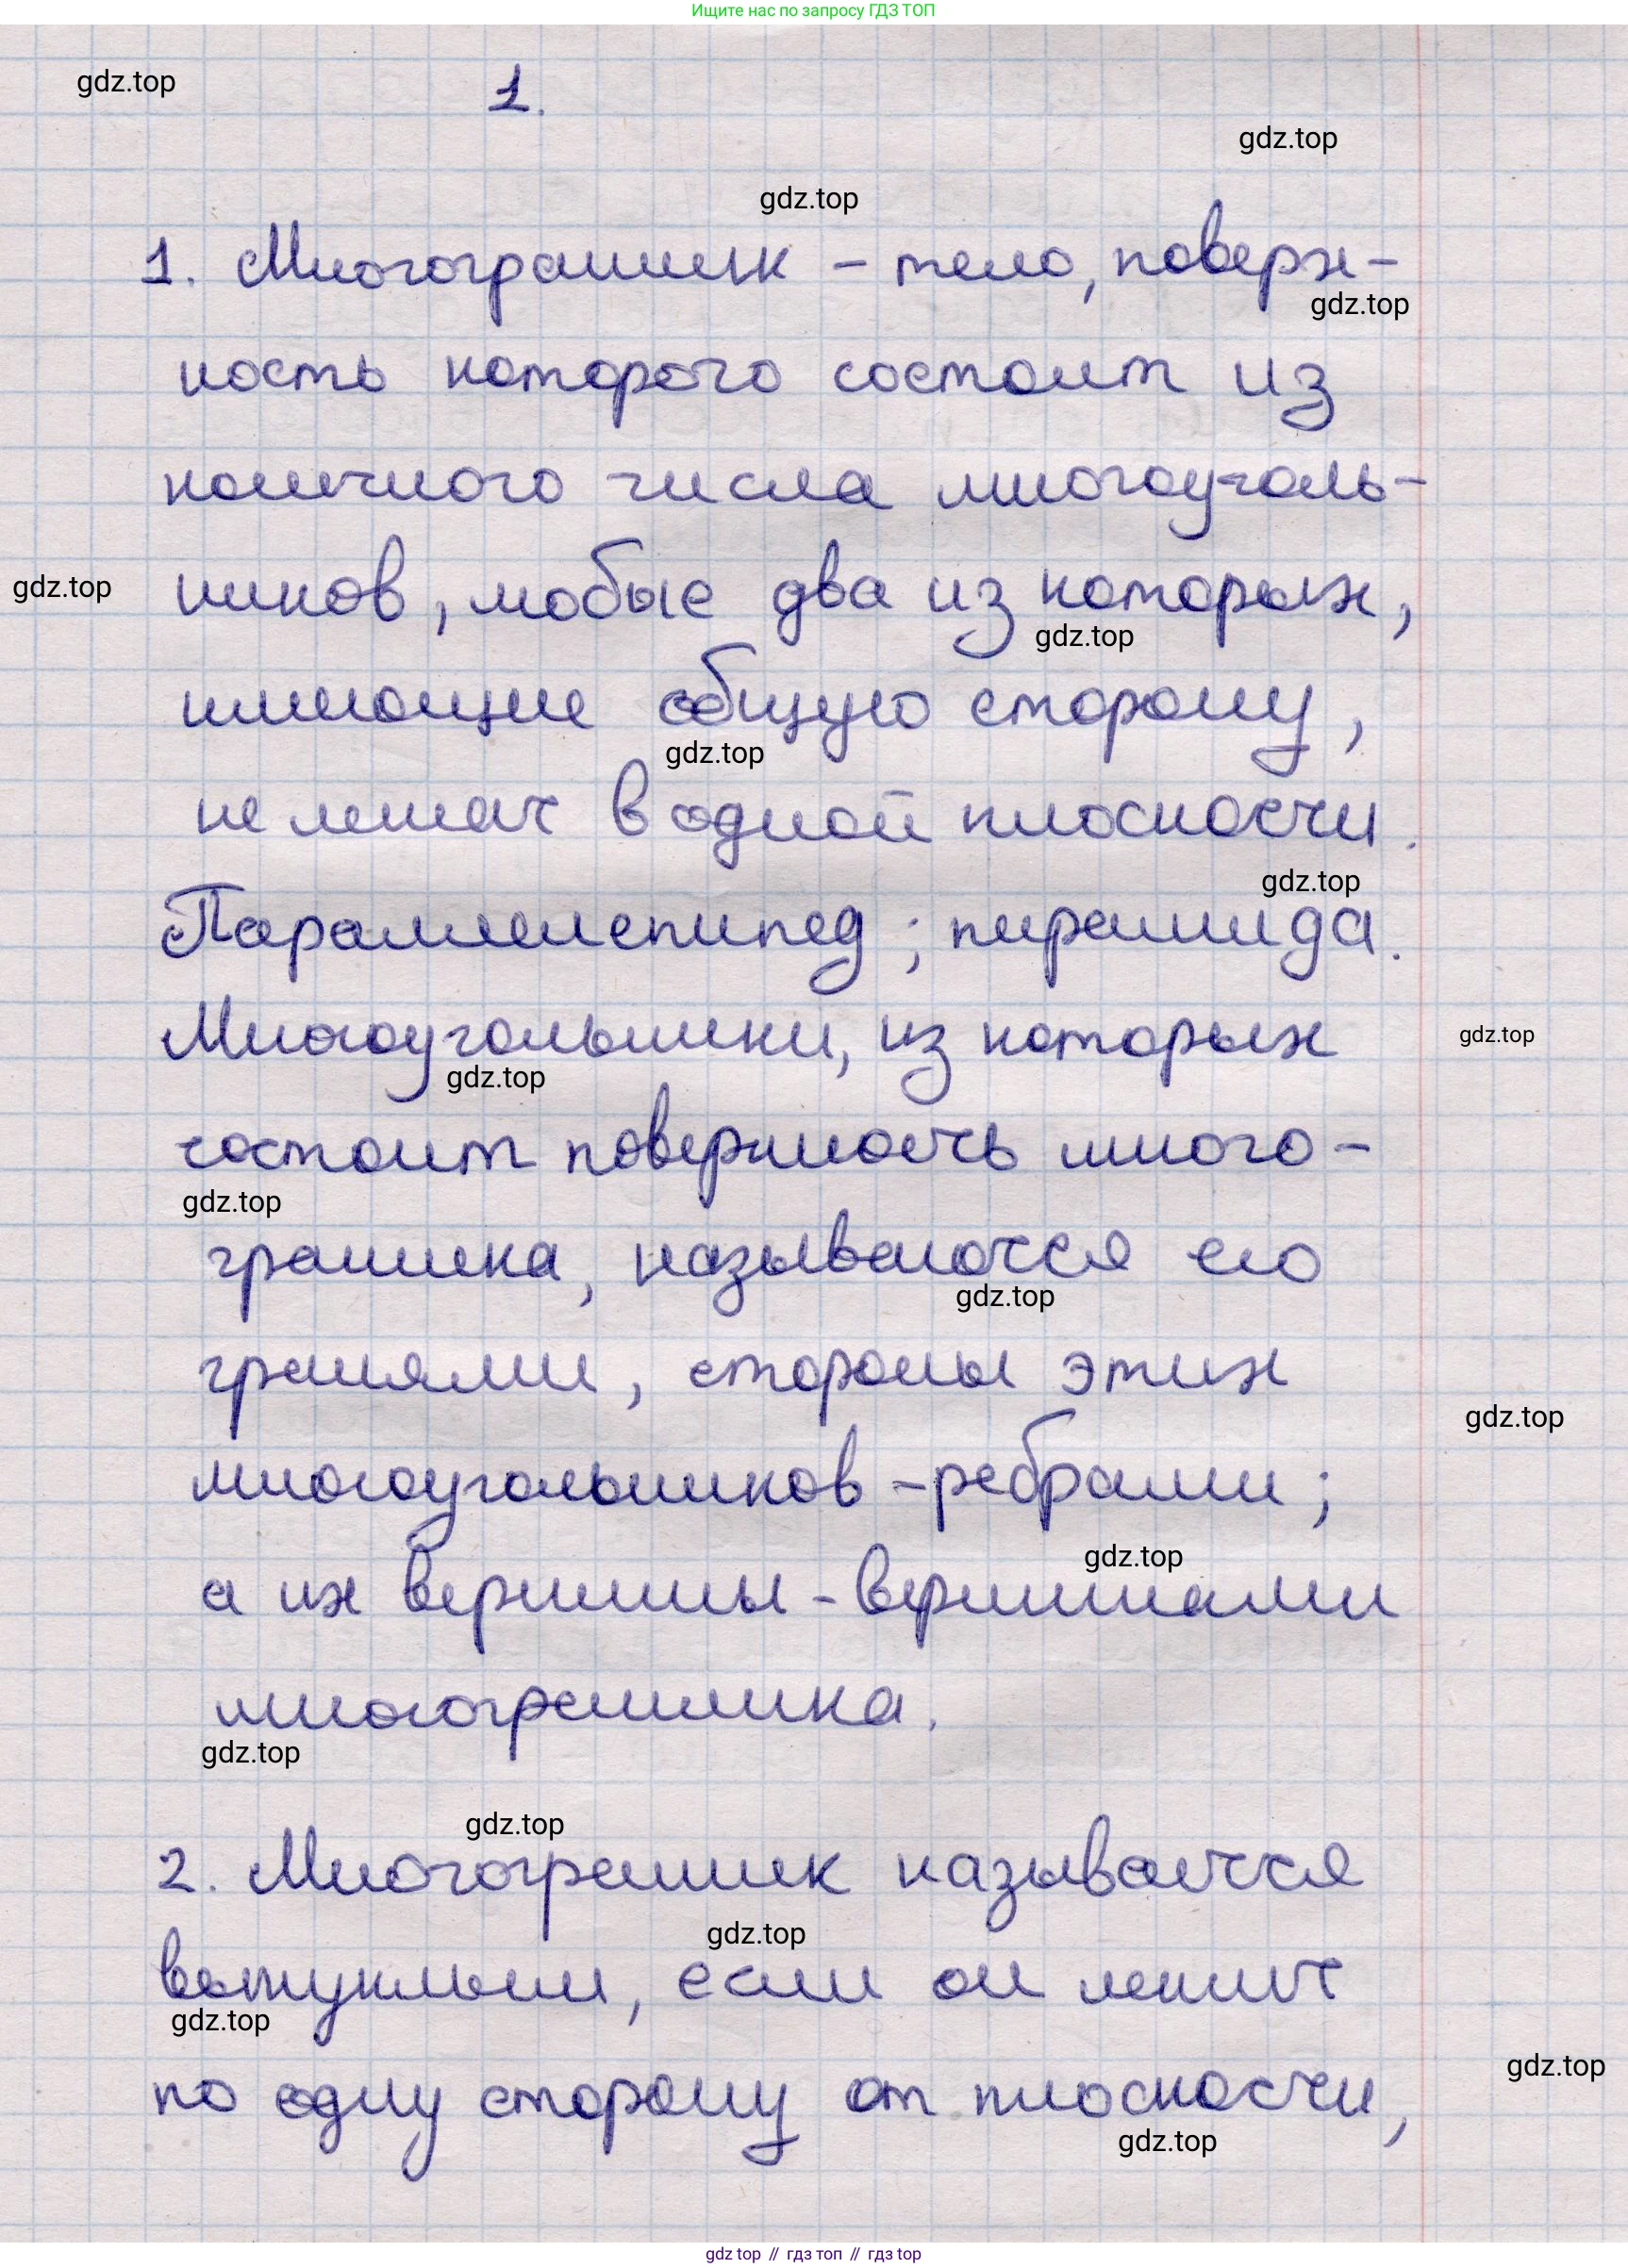 Ищите нас по запросу ГДЗ ТОП
gdz.top
1.
gdz.top
gdz.top
1. Многогранник – тело, поверх-
gdz.top
ность которого состоит из
конечного числа многоуголь-
ников, любые два из которых,
gdz.top
gdz.top
имеющие общую сторону,
gdz.top
не лежат в одной плоскости.
gdz.top
Параллелепипед; пирамида.
Многоугольники, из которых
gdz.top
gdz.top
состоит поверхность много-
gdz.top
гранника, называются его
gdz.top
гранями, стороны этих
gdz.top
многоугольников – ребрами;
gdz.top
а их вершины – вершинами
многогранника.
gdz.top
gdz.top
2. Многогранник называется
gdz.top
выпуклым, если он лежит
gdz.top
по одну сторону от плоскости,
gdz.top
gdz.top
gdz top // гдз топ // гдз top